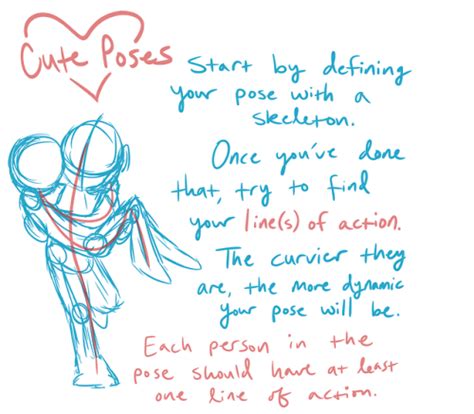 Cute Poses
Start by defining
your pose with a
skeleton.
Once you've done
that, try to find
your line(s) of action.
The curvier they
are, the more dynamic
your pose will be.
Each person in the
pose should have at least
one line of action.